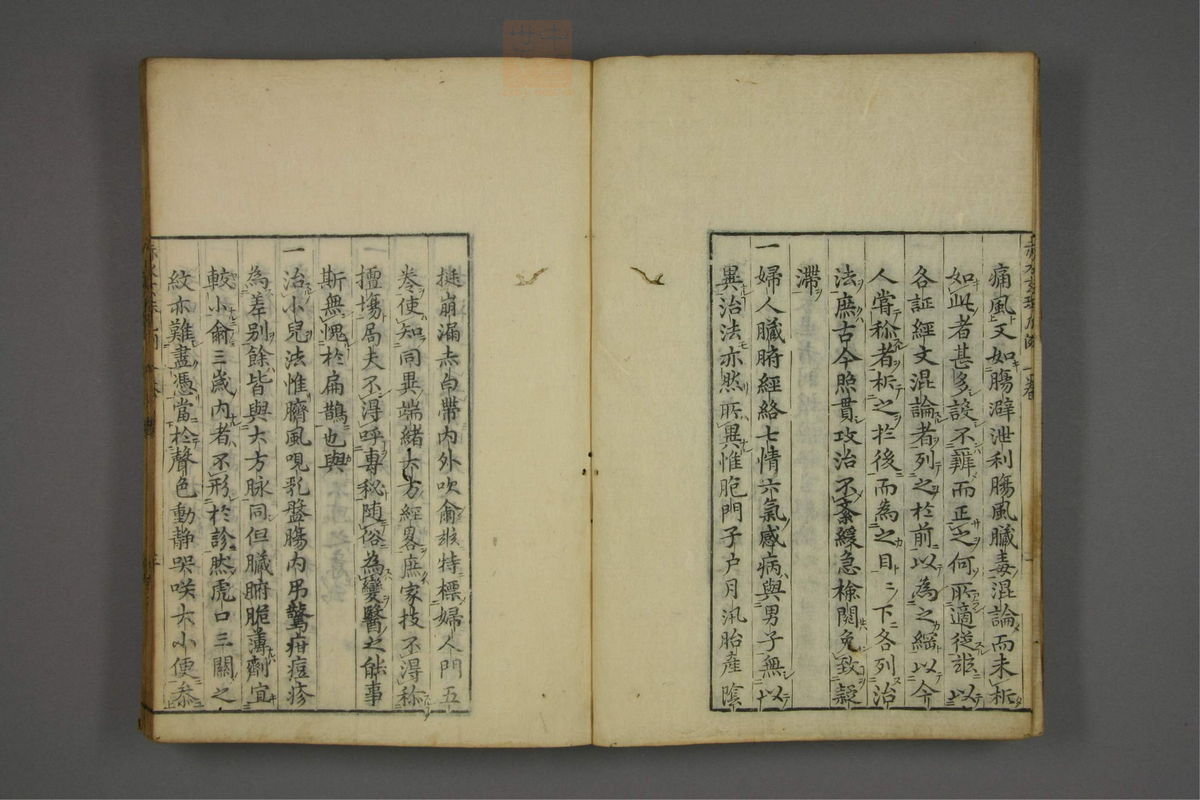 痛風又如膓澼泄利膓風臟毒混論而未柝
如此者甚多設不辨而正之何所適從玆以
各証經文混論者列之扵前以為之綱以今
人嘗称者柝之扵後而為之目二下各列治
法庶古今照貫攻治不紊緩急檢閱免致疑
滯
一婦人臟腑經絡七情六氣感病與男子無以
異治法亦然所異惟胞門子户月汛胎産陰
挺崩漏赤白帶内外吹𥚃玆特標婦人門五
巻使知同異端緒大方經畧庶家技不得称
擅塲局夫不得呼專秘随俗為變醫之能事
斯無愧於扁鵲也與
一治小兒法惟臍風呪乳盤膓内吊驚疳痘疹
為差别餘皆與大方脉同但臟腑脆薄劑宜
較小俞三歲内者不形扵診然虎口三關之
紋亦難盡憑當扵聲色動静哭咲大小便叅